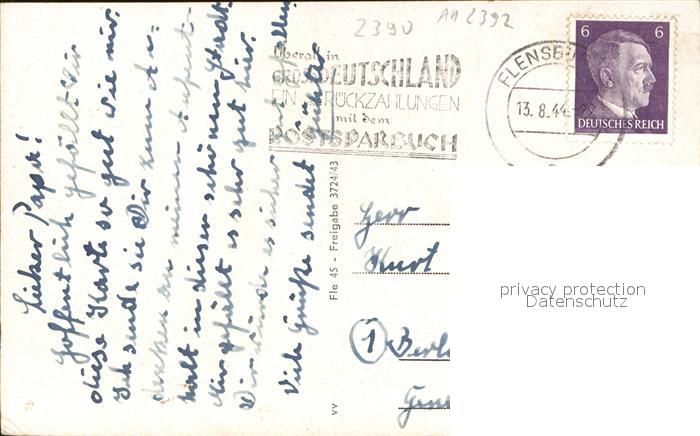 2390
AH 2392
Überall in
GROSSDEUTSCHLAND
EIN- RÜCKZAHLUNGEN
mit dem
POSTSPARBUCH
FLENSBU
13. 8. 44
6 6
DEUTSCHES REICH
Lieber Papa!
Hoffentlich gefällt Dir
diese Karte so gut wie mir.
Ich sende sie Dir zum An-
denken an meinen Aufent-
halt in dieser schönen Stadt.
Mir gefällt es sehr gut hier.
Dir würde es sicher gefallen.
Viele Grüße sendet
Fle 45 - Freigabe 3724/43
VV
Herr
Kurt
1 Berl
Gene
privacy protection
Datenschutz